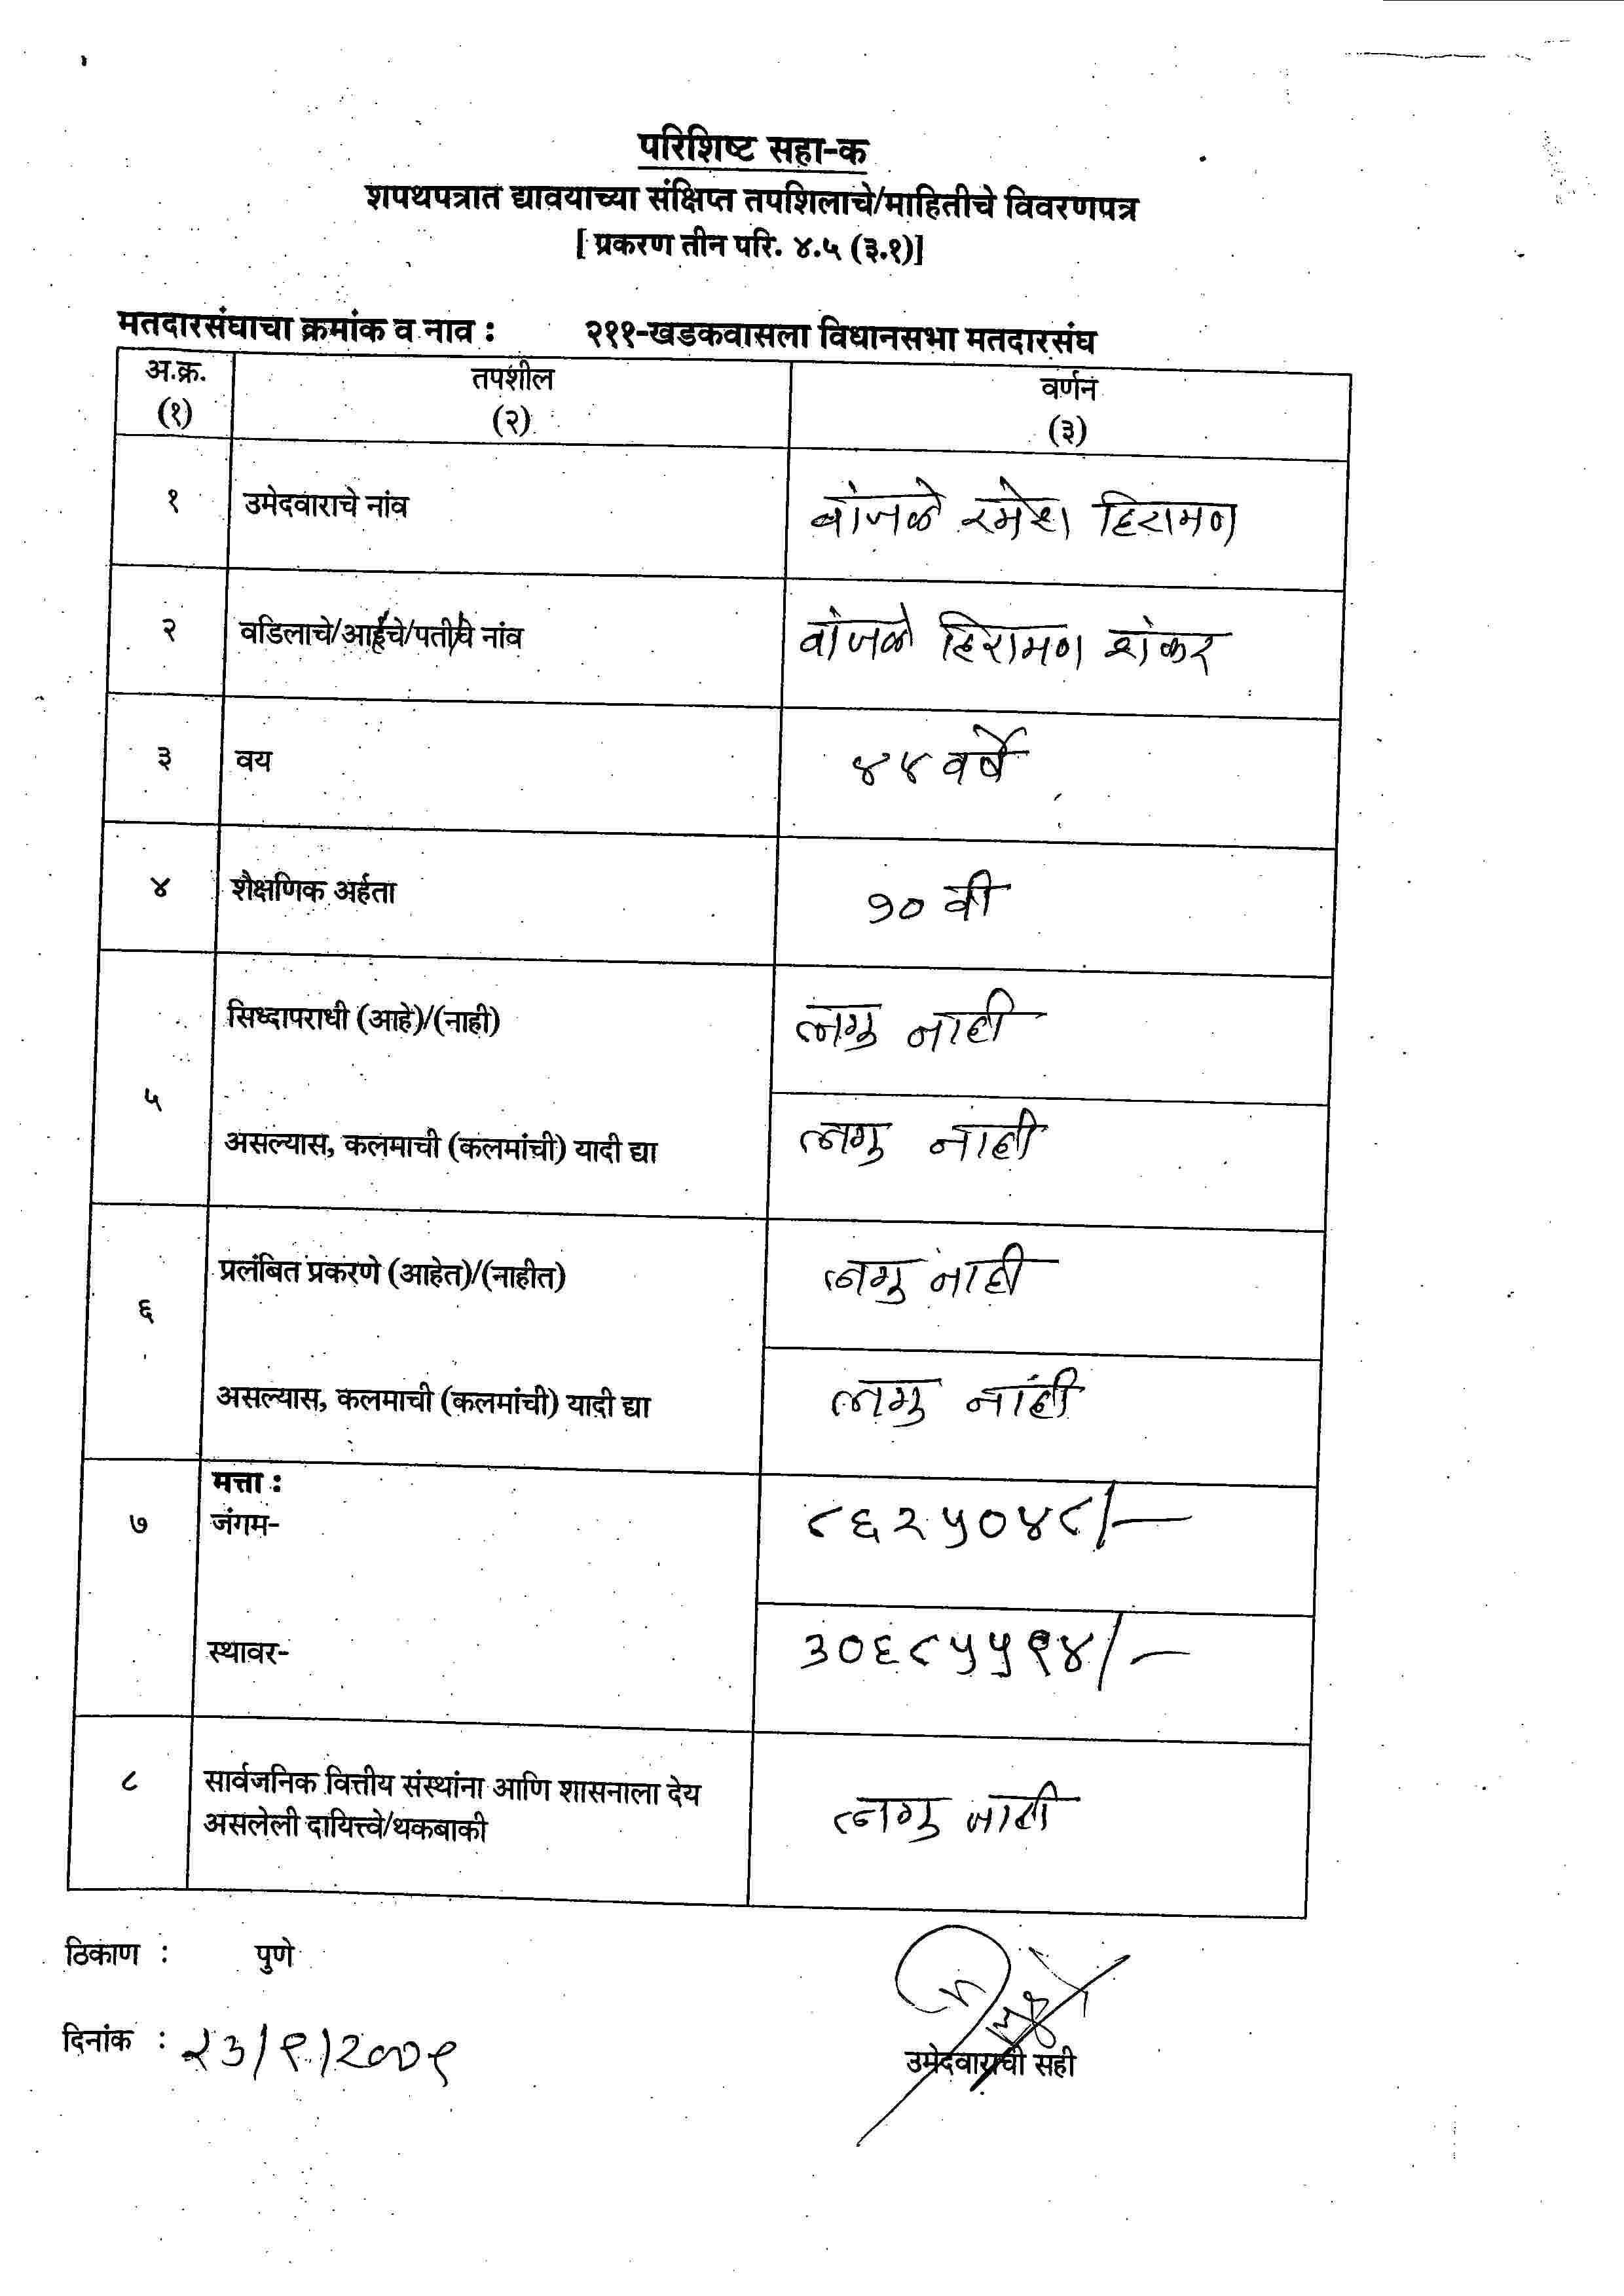 परिशिष्ट सहा-क
शपथपत्रात द्यावयाच्या संक्षिप्त तपशिलाचे/माहितीचे विवरणपत्र
[ प्रकरण तीन परि. ४.५ (३.१)]
मतदारसंघाचा क्रमांक व नाव : २११-खडकवासला विधानसभा मतदारसंघ
अ.क्र. तपशील वर्णन
(१) (२) (३)
१ उमेदवाराचे नांव वांजळे रमेश हिरामण
२ वडिलाचे/आईचे/पतीचे नांव वांजळे हिरामण शंकर
३ वय ४४ वर्षे
४ शैक्षणिक अर्हता १० वी
सिध्दापराधी (आहे)/(नाही) लागु नाही
५
असल्यास, कलमाची (कलमांची) यादी द्या लागु नाही
प्रलंबित प्रकरणे (आहेत)/(नाहीत) लागु नाही
६
असल्यास, कलमाची (कलमांची) यादी द्या लागु नाही
मत्ता :
७ जंगम- ८६२५०४८/-
स्थावर- ३०६८५५१४/-
८ सार्वजनिक वित्तीय संस्थांना आणि शासनाला देय
असलेली दायित्त्वे/थकबाकी लागु नाही
ठिकाण : पुणे
दिनांक : २३/९/२००९
उमेदवाराची सही